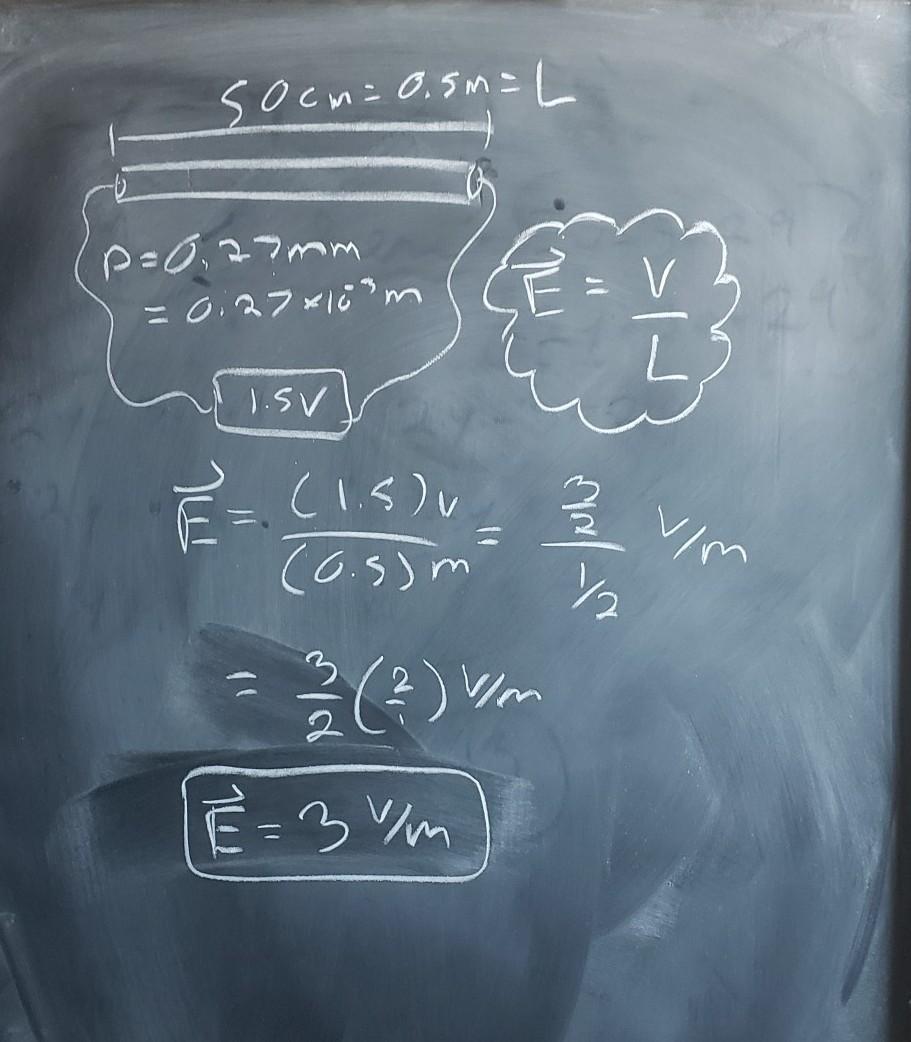 50cm = 0.5m = L
D = 0.27mm
= 0.27 × 10⁻³ m
1.5V
E⃗ = V/L
E⃗ = (1.5)V/(0.5)m = (3/2)/(1/2) V/m
= 3/2 (2/1) V/m
E⃗ = 3 V/m